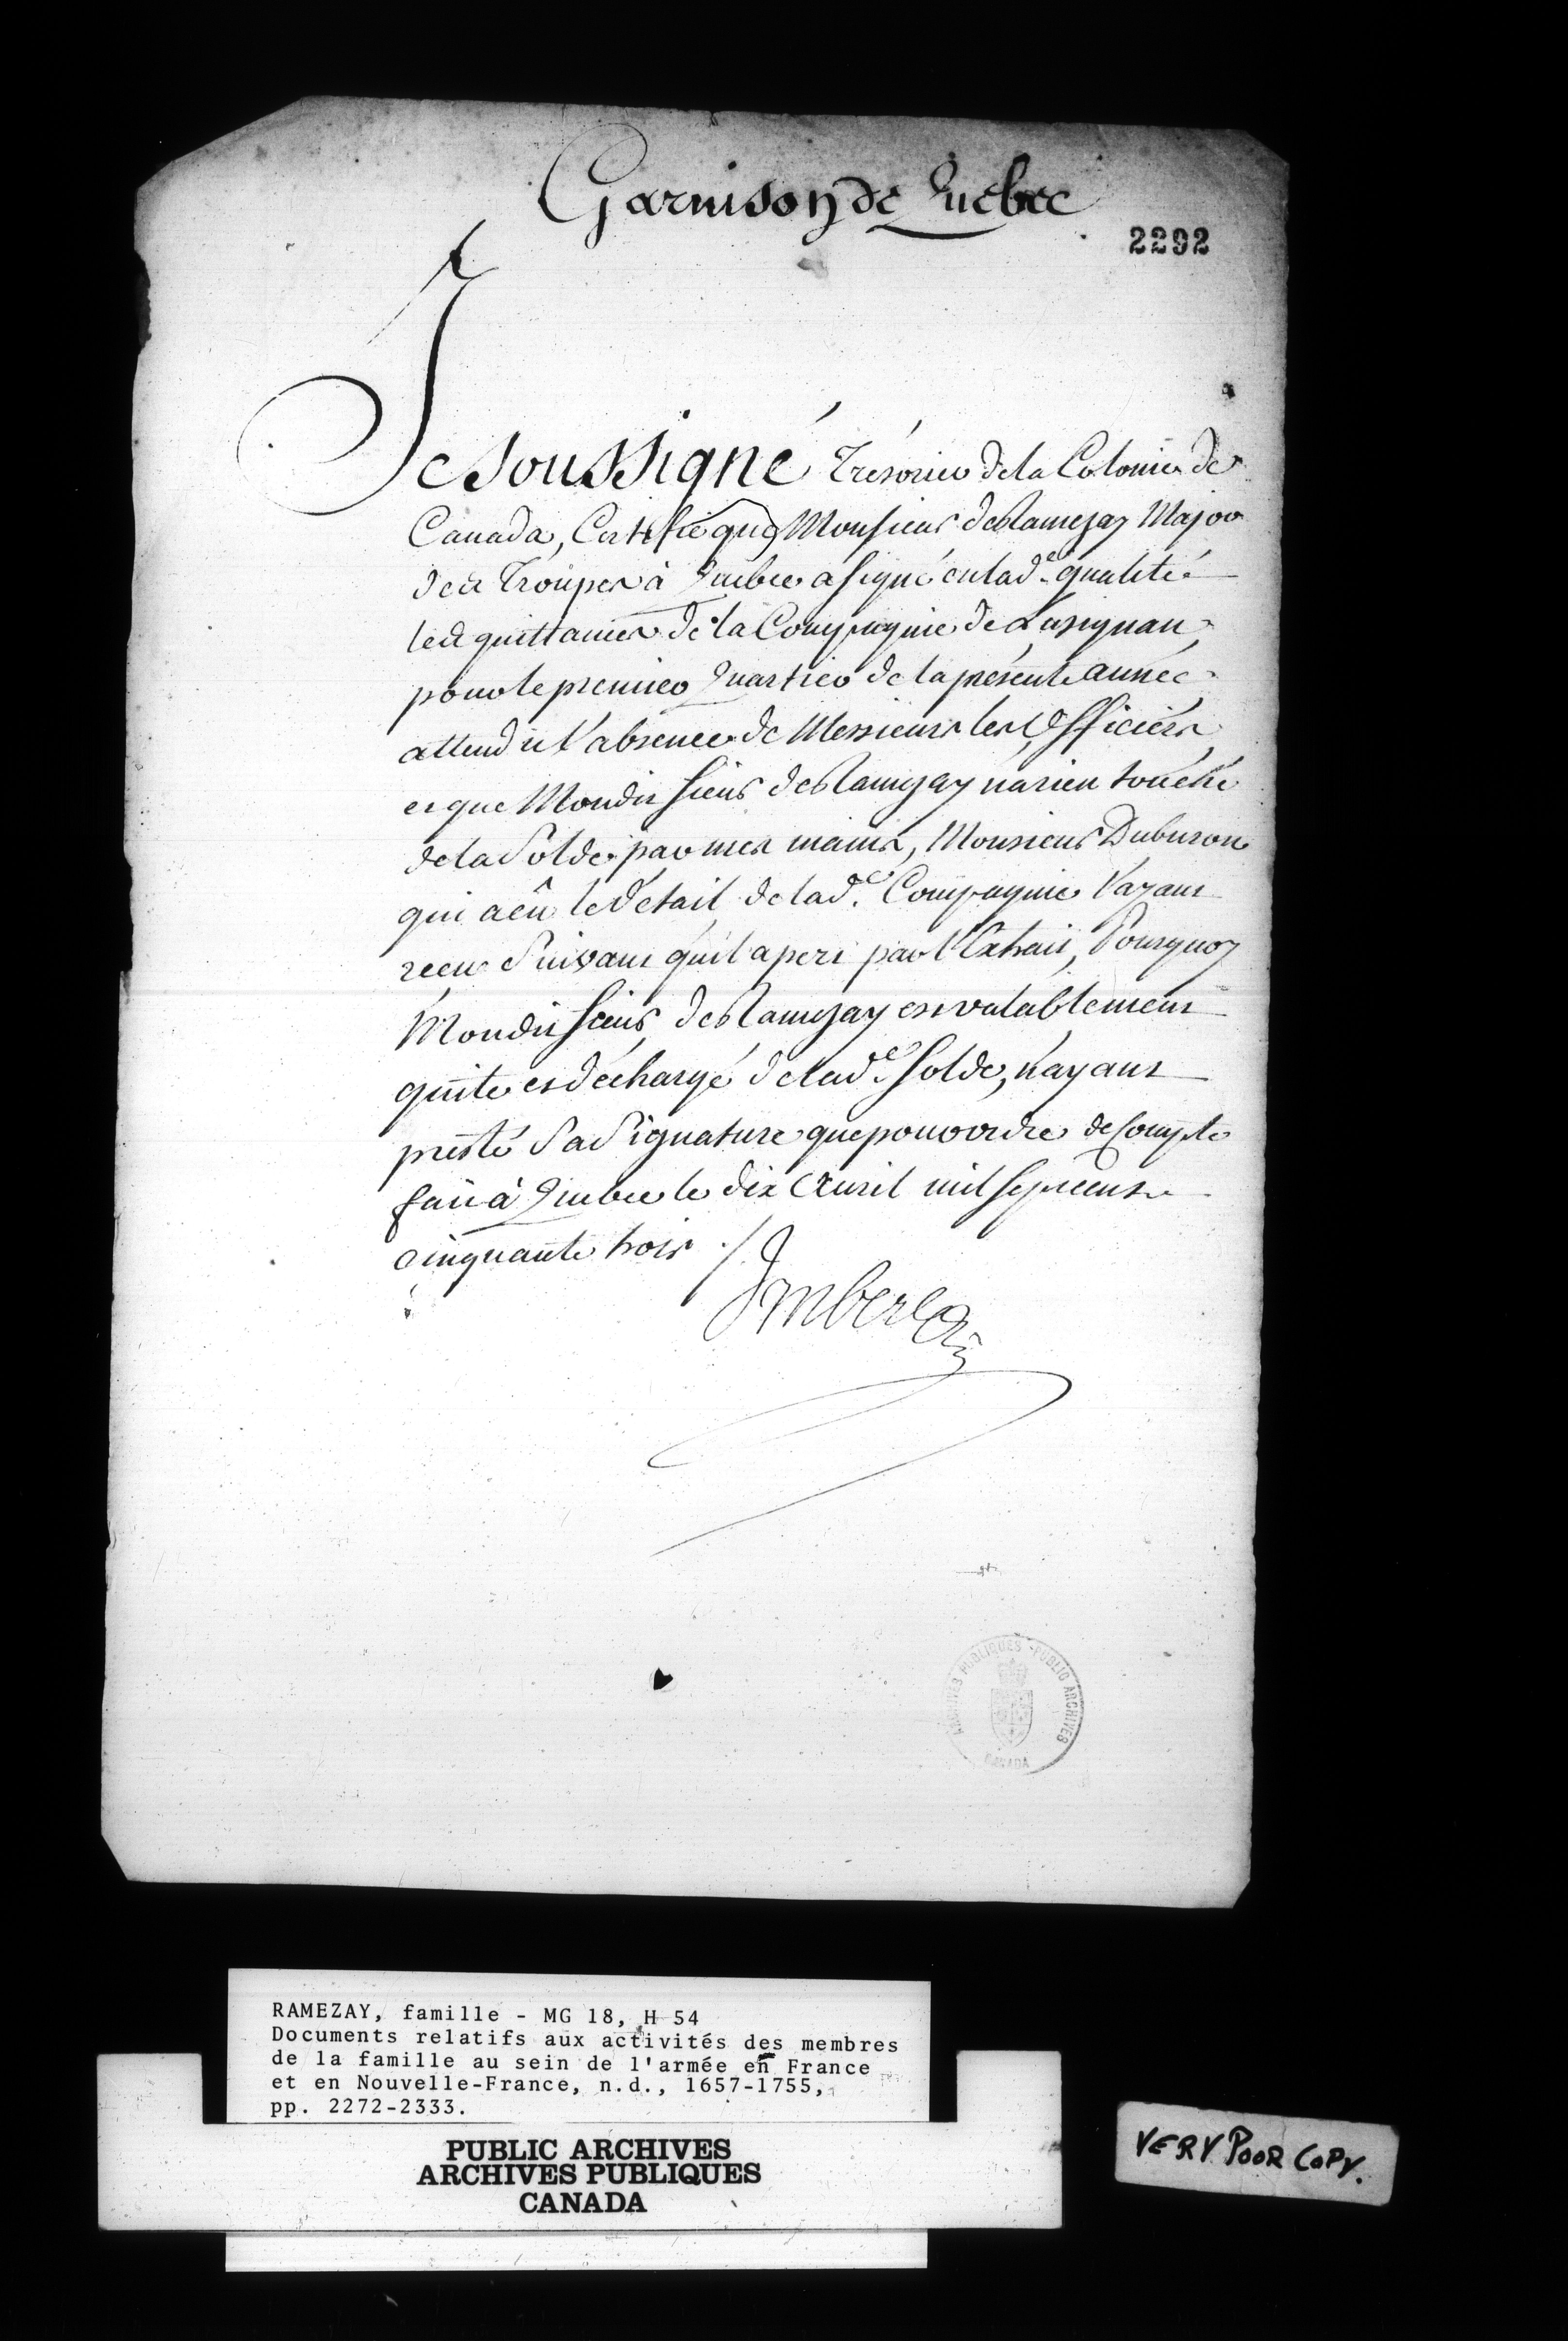 Garnison de Quebec
2292
Je soussigné Trésorier de la Colonie de
Canada, Certifie que Monsieur de Ramezay Major
des Troupes à Quebec a signé en lad.e qualité
les quittances de la Compagnie de Lusignan
pour le premier Quartier de la présente année
attendu l'absence de Messieurs les Officiers
et que Mondit sieur de Ramezay n'a rien touché
de la Solde par mes mains, Monsieur Duburon
qui a eû le détail de lad.e Compagnie l'ayant
reçu Suivant qu'il apert par l'Extrait, Pourquoy
Mondit sieur de Ramezay est valablement
quite et déchargé de lad.e Solde, n'ayant
presté Sa Signature que pour ordre de Compte
fait à Quebec le dix Avril mil sept cent
cinquante trois ./.
Imbert
ARCHIVES PUBLIQUES - PUBLIC ARCHIVES
CANADA
RAMEZAY, famille - MG 18, H 54
Documents relatifs aux activités des membres
de la famille au sein de l'armée en France
et en Nouvelle-France, n.d., 1657-1755,
pp. 2272-2333.
PUBLIC ARCHIVES
ARCHIVES PUBLIQUES
CANADA
VERY POOR COPY.